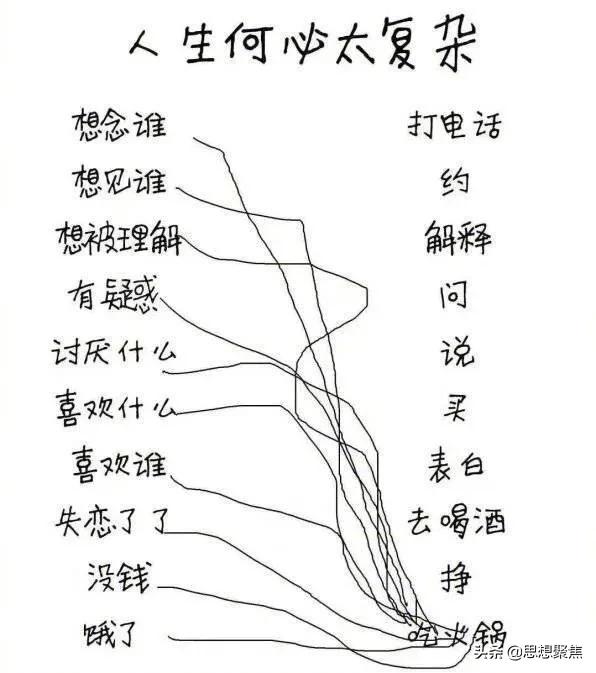 人生何必太复杂
想念谁 打电话
想见谁 约
想被理解 解释
有疑惑 问
讨厌什么 说
喜欢什么 买
喜欢谁 表白
失恋了了 去喝酒
没钱 挣
饿了 吃火锅
头条 @思想聚焦